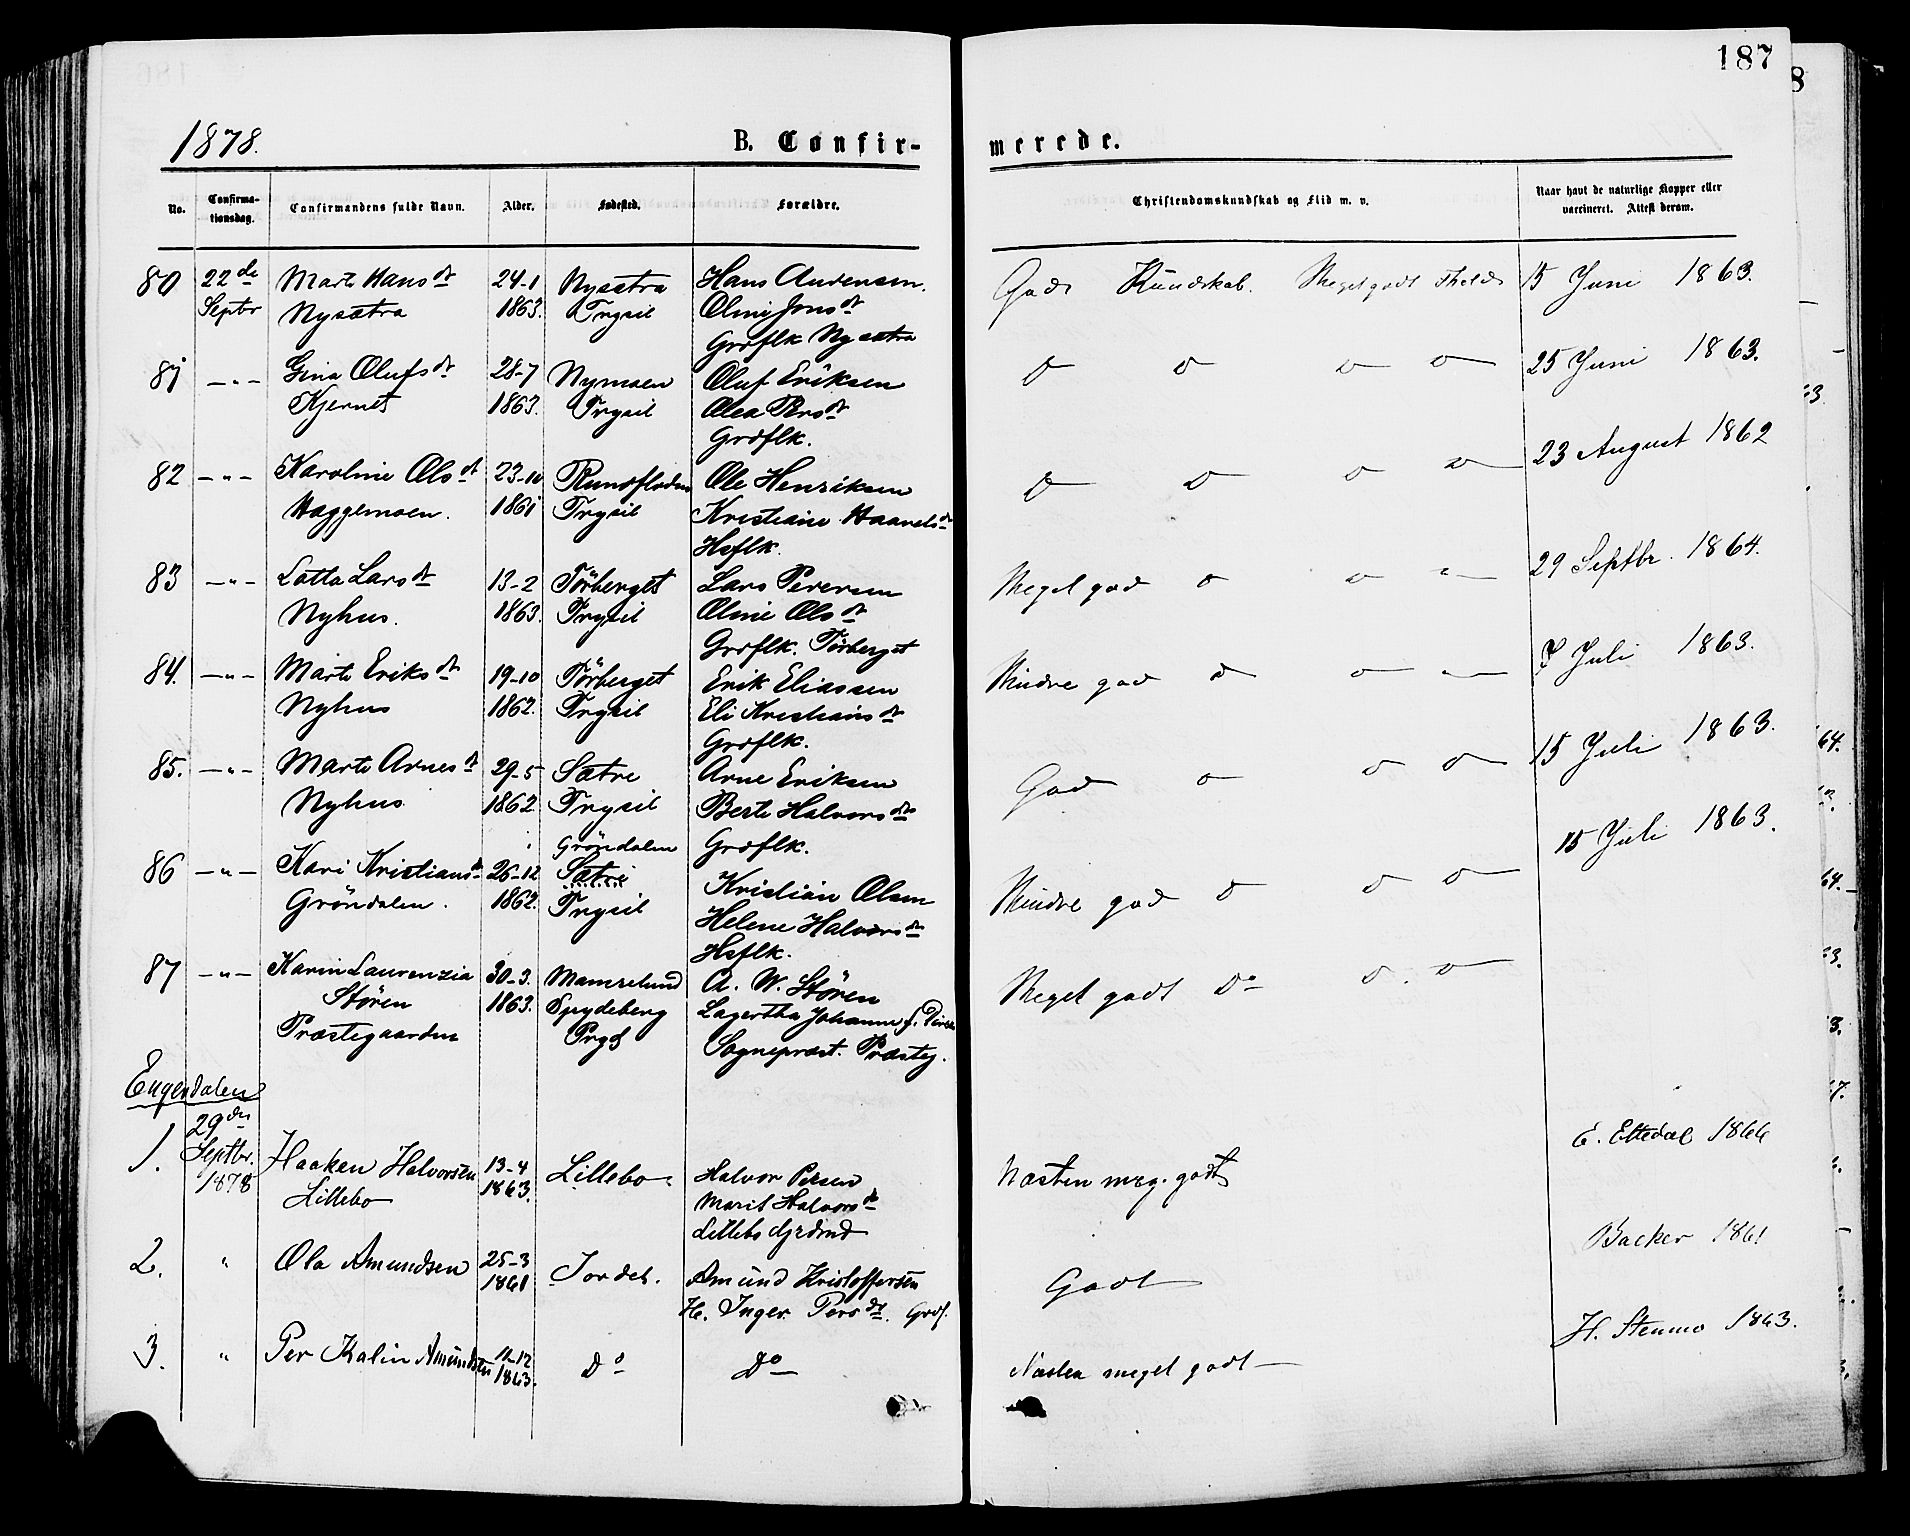 187
1878.
B. Confir-
merede.
No.
Confirma-
tionsdag.
Confirmandens fulde Navn.
Alder.
Fødested.
Forældre.
Christendomskundskab og Flid m. v.
Naar havt de naturlige Kopper eller
vaccineret. Attest derom.
80 22de Septbr
Marte Hans dt
Nysætra
24-1
1863.
Nysætra
Trysil
Hans Andersen.
Oline Jons dt
Grdflk Nysætra
God Kundskab. Meget godt Forhold
15 Juni 1863.
81 — " —
Gina Olufs dt
Kjernet
28-7
1863.
Nymoen
Trysil
Oluf Eriksen
Olea Pers dt
Grdflk.
25 Juni 1863.
82 — " —
Karoline Ols dt
Haggemoen.
23-10
1861
Rundfloden
Trysil
Ole Henriksen
Kristiane Haavels dt
Hsflk.
23 August 1862
83 — " —
Lotta Lars dt
Nyhus.
13-2
1863.
Törberget
Trysil
Lars Pedersen
Oline Ols dt
Grdflk. Törberget
Meget god
29 Septbr. 1864.
84. — " —
Marte Eriks dt
Nyhus
19-10
1862.
Törberget
Trysil
Erik Eliassen
Eli Kristians dt
Grdflk.
Mindre god
7 Juli 1863.
85. — " —
Marte Arnes dt
Nyhus
29-5
1862
Sætre
Trysil
Arne Eriksen
Berte Halvors dt
Grdflk.
God
15 Juli 1863.
86 — " —
Kari Kristians dt
Gröndalen.
26-12
1862.
Gröndalen
Sætre
Trysil
Kristian Olsen
Helene Halvors dt
Hsflk.
Mindre god
15 Juli 1863.
87 — " —
Karin Laurenzia
Stören
Præstegaarden
30-3.
1863.
Mamrelund
Spydeberg
Prgd
A. W. Stören
Lagertha Johanne f.
Sognepræst. Præsteg.
Meget godt Do
Engerdalen
1. 29de
Septbr.
1878
Haaken Halvorsen
Lillebo
13-4
1863.
Lillebo
Halvor Persen
Marit Halvors dt
Lillebo
Næsten meg. godt
E. Ettedal 1866
2. "
Ola Amundsen
25-3
1861
Jordet.
Amund Kristoffersen
H. Inger Pers dt. Grdf.
Godt
Backer 1861
3. "
Per Kalin Amundsen
11-12
1863.
Do
Do
Næsten meget godt —
H. Stenmo 1863.